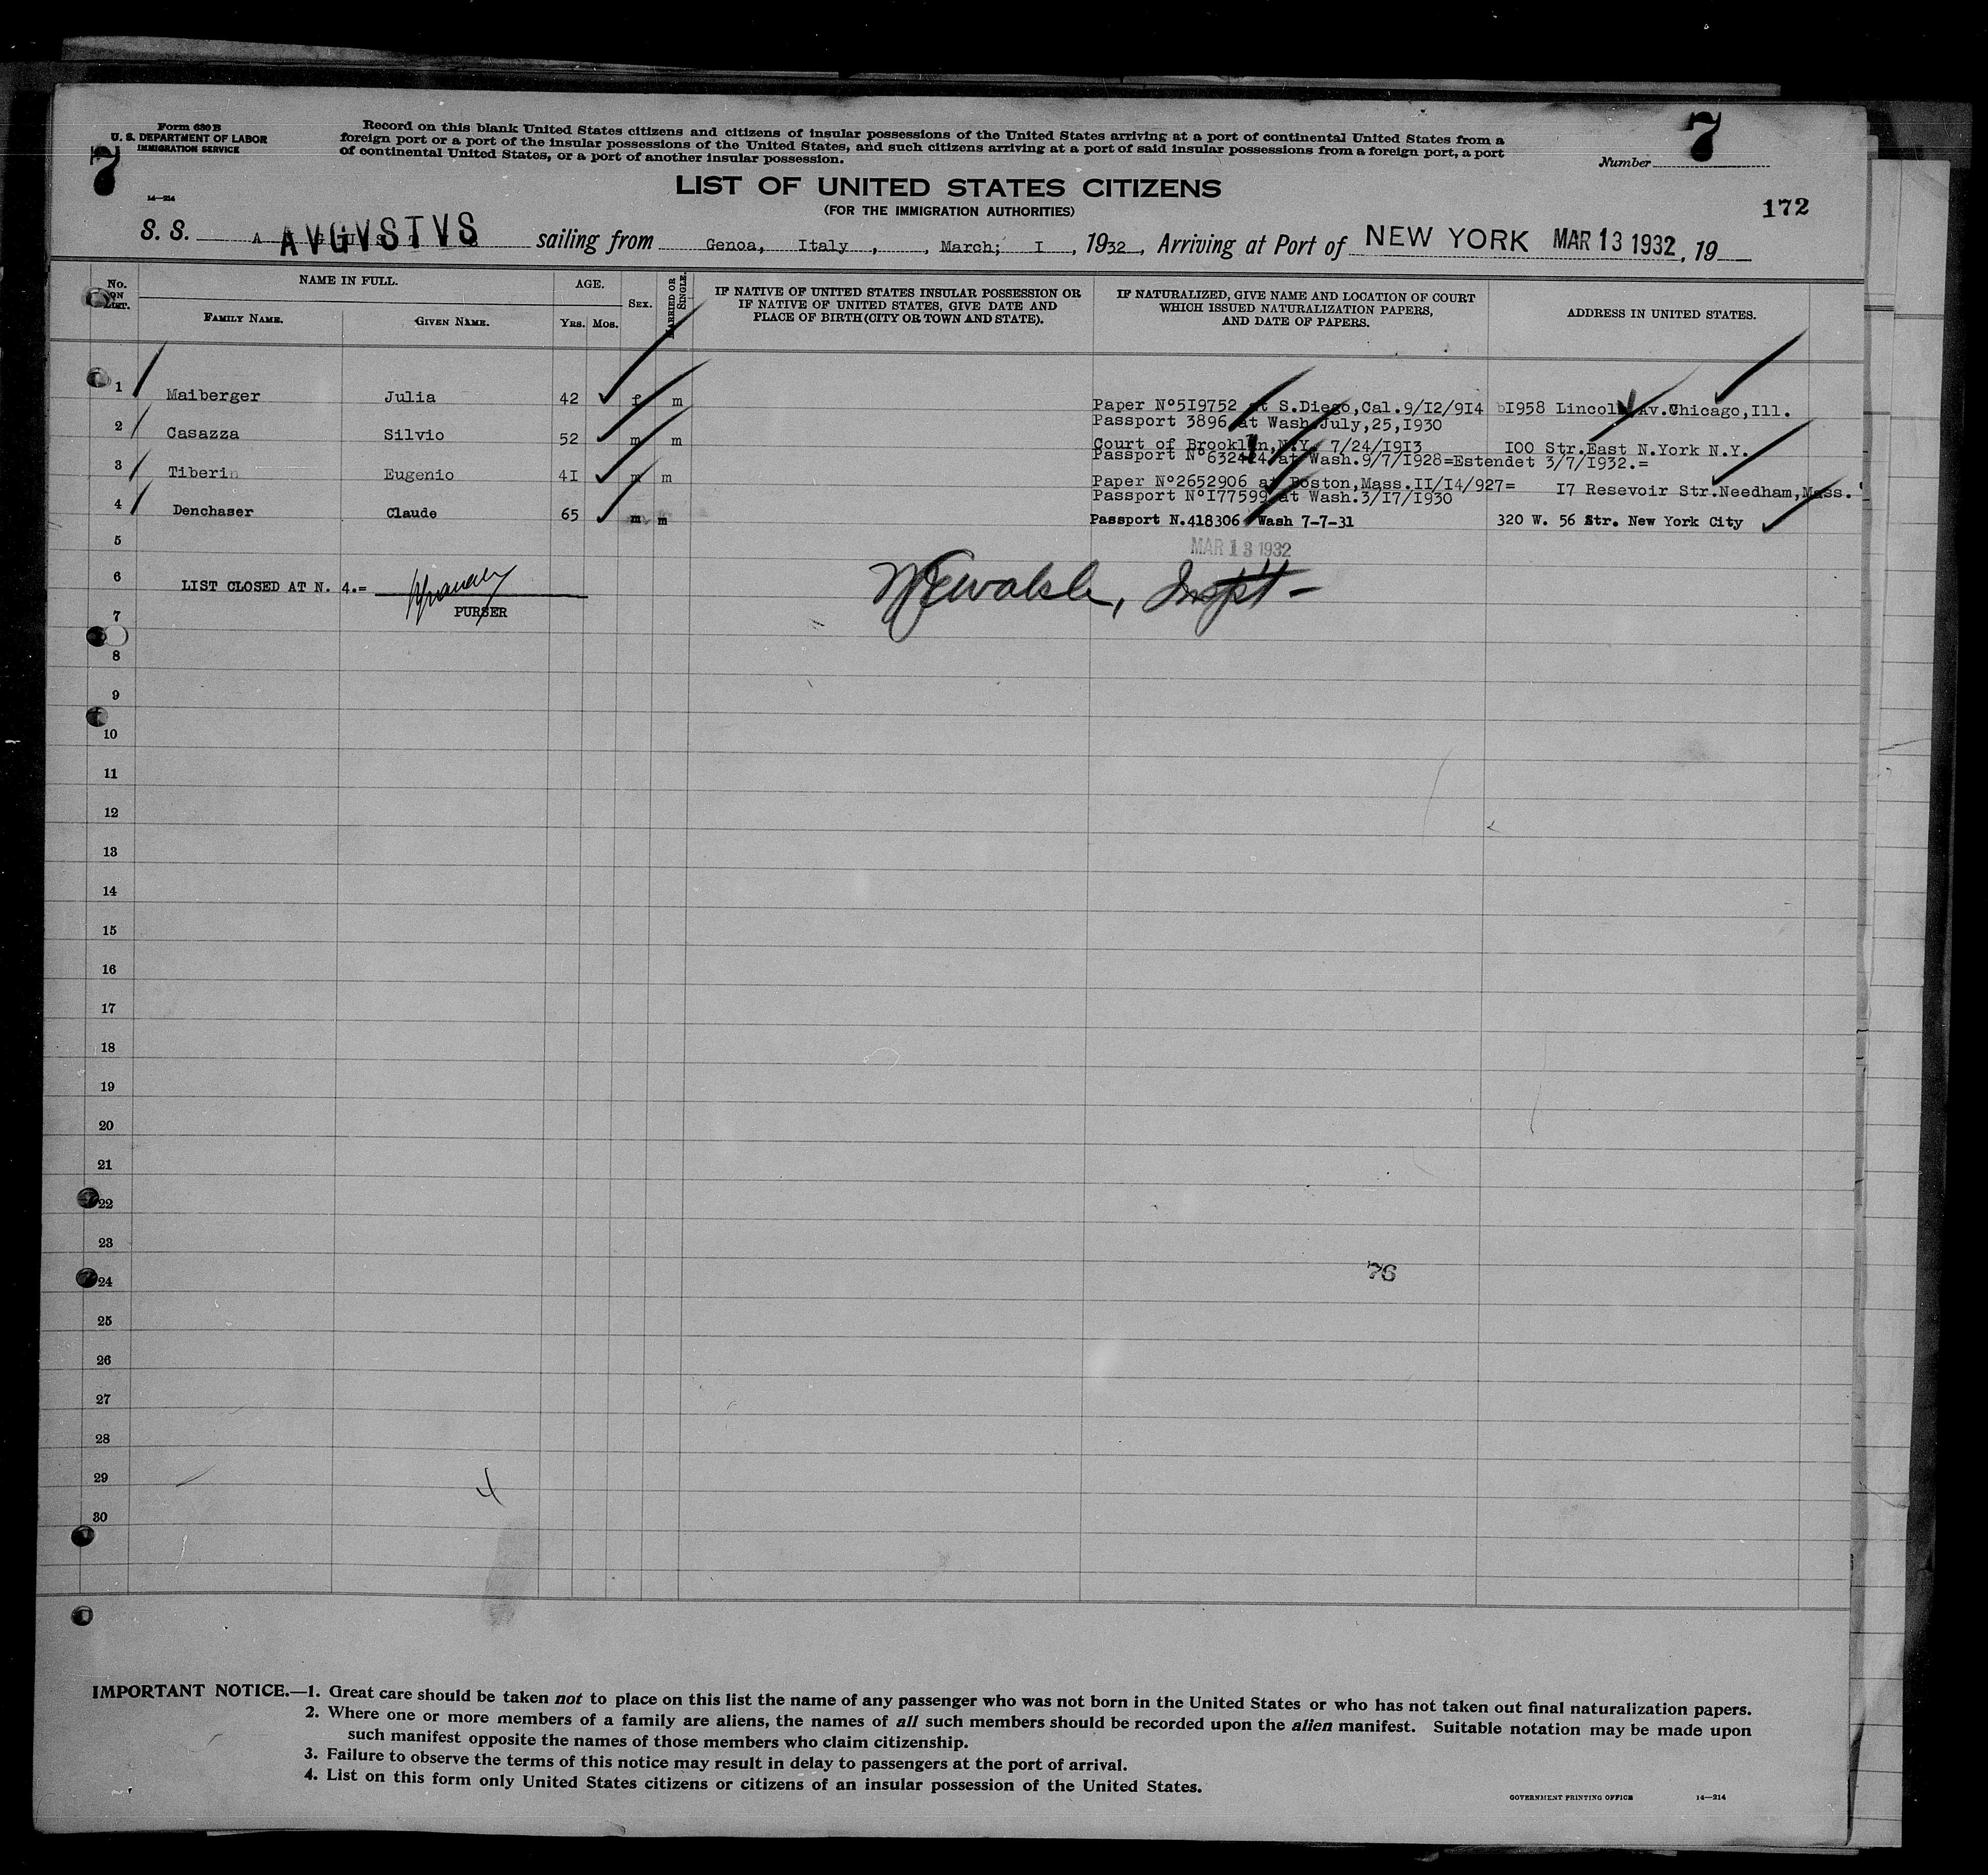 Form 630 B
U. S. DEPARTMENT OF LABOR
IMMIGRATION SERVICE
7
14—214
Record on this blank United States citizens and citizens of insular possessions of the United States arriving at a port of continental United States from a
foreign port or a port of the insular possessions of the United States, and such citizens arriving at a port of said insular possessions from a foreign port, a port
of continental United States, or a port of another insular possession.
Number 7
LIST OF UNITED STATES CITIZENS
(FOR THE IMMIGRATION AUTHORITIES)
172
S. S. AVGVSTVS sailing from Genoa, Italy , , March; I , 1932, Arriving at Port of NEW YORK MAR 13 1932, 19
No. ON LIST. NAME IN FULL. FAMILY NAME. GIVEN NAME. AGE. YRS. MOS. SEX. MARRIED OR SINGLE.
IF NATIVE OF UNITED STATES INSULAR POSSESSION OR
IF NATIVE OF UNITED STATES, GIVE DATE AND
PLACE OF BIRTH (CITY OR TOWN AND STATE).
IF NATURALIZED, GIVE NAME AND LOCATION OF COURT
WHICH ISSUED NATURALIZATION PAPERS,
AND DATE OF PAPERS.
ADDRESS IN UNITED STATES.
1 Maiberger Julia 42 f m Paper Nº5I9752 at S.Diego,Cal.9/12/914 I958 Lincoln Av.Chicago,Ill.
Passport 3896 at Wash July,25,I930
2 Casazza Silvio 52 m m Court of Brooklin,N.Y. 7/24/I9I3 I00 Str.East N.York N.Y.
Passport Nº632424 at Wash.9/7/I928=Estendet 3/7/I932.=
3 Tiberin Eugenio 4I m m Paper Nº2652906 at Boston,Mass.II/I4/927= I7 Resevoir Str.Needham,Mass.
Passport NºI77599 at Wash.3/I7/I930
4 Denchaser Claude 65 m m Passport N.418306 Wash 7-7-31 320 W. 56 Str. New York City
5
MAR 13 1932
6 LIST CLOSED AT N. 4.=
Inspt-
PURSER
7
8
9
10
11
12
13
14
15
16
17
18
19
20
21
22
23
24
76
25
26
27
28
29
4
30
IMPORTANT NOTICE.—1. Great care should be taken not to place on this list the name of any passenger who was not born in the United States or who has not taken out final naturalization papers.
2. Where one or more members of a family are aliens, the names of all such members should be recorded upon the alien manifest. Suitable notation may be made upon
such manifest opposite the names of those members who claim citizenship.
3. Failure to observe the terms of this notice may result in delay to passengers at the port of arrival.
4. List on this form only United States citizens or citizens of an insular possession of the United States.
GOVERNMENT PRINTING OFFICE 14—214